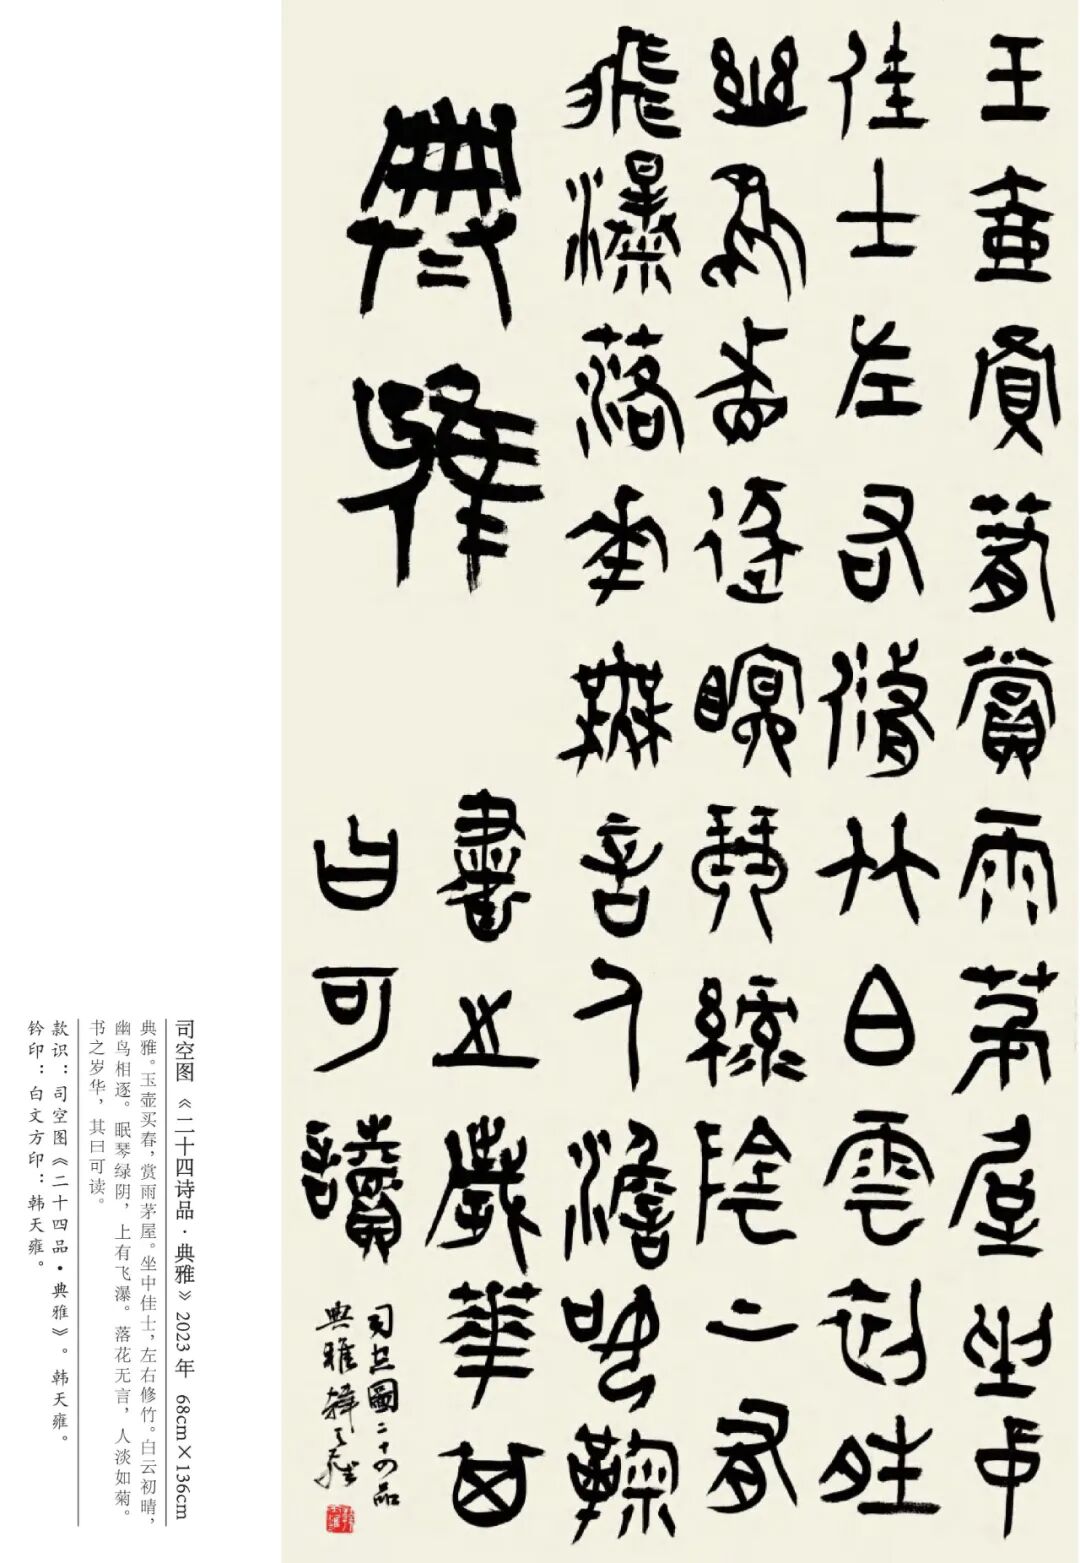 玉壺買春賞雨茅屋坐中
佳士左右脩竹白雲初晴
幽鳥相逐瞑琴綠陰上有
飛瀑落華無言人澹如菊
典雅
書之歲華其
曰可讀
司空圖二十四品
典雅韓天雍
司空图《二十四诗品·典雅》2023年 68cm×136cm
典雅。玉壶买春，赏雨茅屋。坐中佳士，左右修竹。白云初晴，
幽鸟相逐。眠琴绿阴，上有飞瀑。落花无言，人淡如菊。
书之岁华，其曰可读。
款识：司空图《二十四品·典雅》。韩天雍。
钤印：白文方印：韩天雍。